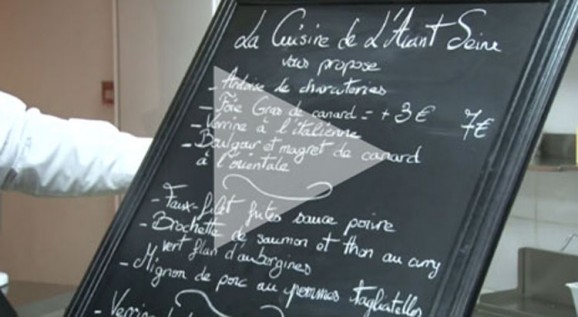 La Cuisine de L'Avant Seine
vous propose
- Ardoise de charcuteries
- Foie Gras de canard = + 3€ 7€
- Verrine à l'italienne
- Boulgour et magret de canard
à l'orientale
- Faux-filet frites sauce poivre
- Brochette de saumon et thon au curry
vert flan d'aubergines
- Mignon de porc aux pommes tagliatelles
- Verrine